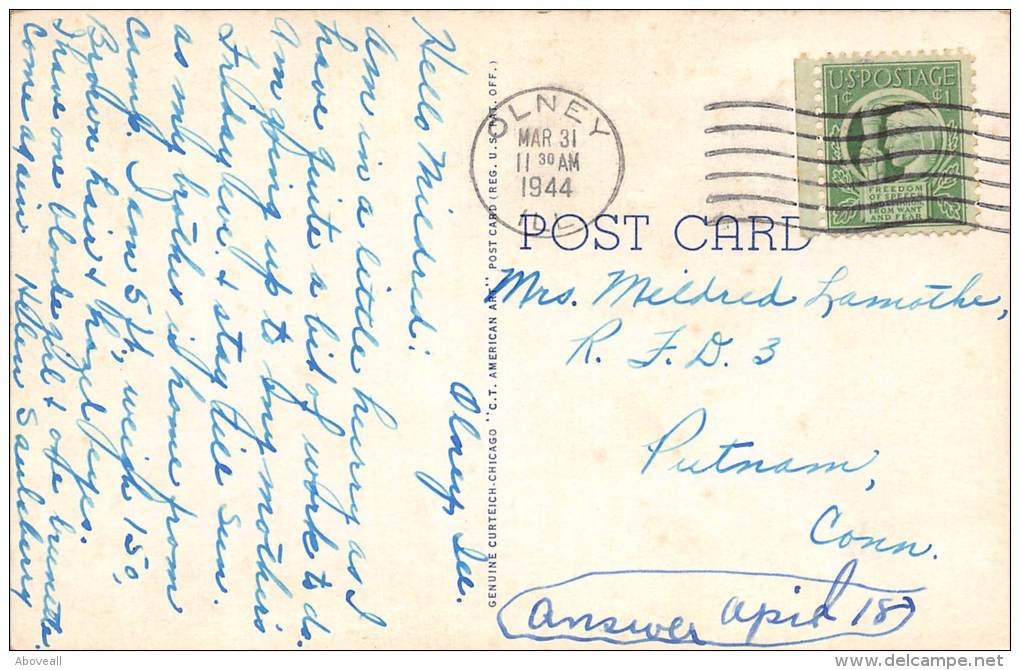 Olney, Ill.
Hello Mildred:
Am in a little hurry as I
have quite a bit of work to do.
Am going up to my mothers
Friday eve. & stay till Sun.
as my brother is home from
Camp. I am 5 ft, weigh 150,
Brown hair & hazel eyes.
I have one blonde girl & one brunette.
Come again. Helen Saulsbury
GENUINE CURTEICH-CHICAGO "C.T. AMERICAN ART" POST CARD (REG. U.S. PAT. OFF.)
OLNEY
MAR 31
11 30 AM
1944
ILL
U.S. POSTAGE
1¢ ¢1
FREEDOM
OF SPEECH
AND RELIGION
FROM WANT
AND FEAR
POST CARD
Mrs. Mildred Lamothe,
R. F. D. 3
Putnam,
Conn.
Answer April 18
Aboveall
www.delcampe.net